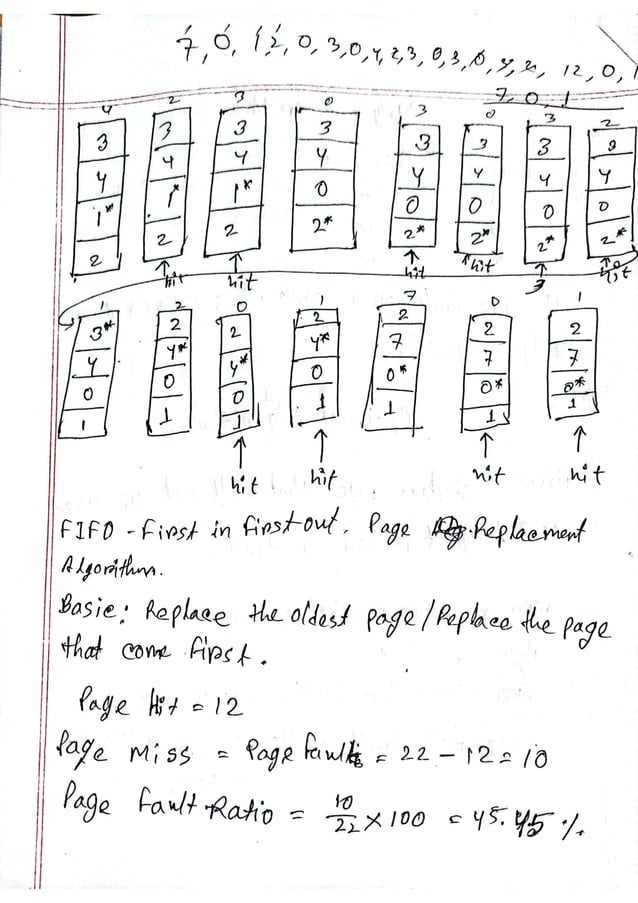 7, 0, 1, 2, 0, 3, 0, 4, 2, 3, 0, 3, 0, 4, 2, 12, 0, 1
7, 0, 1
4 2 3 0 3 0 3 2
3 3 3 3 3 3 3 3
4 4 4 4 4 4 4 4
1* 1* 1* 0 0 0 0 0
2 2 2 2* 2* 2* 2* 2*
hit hit hit hit 3 hit
1 2 0 1 7 0 1
3* 2 2 2 2 2 2
4 4* 4* 4* 7 7 7
0 0 0 0 0* 0* 0*
1 1 1 1 1 1 1
hit hit hit hit
FIFO - First in first out. Page Replacment
Algorithm.
Basic: Replace the oldest page/Replace the page
that come first.
Page Hit = 12
Page Miss = Page Fault = 22 - 12 = 10
Page Fault Ratio = 10/22 × 100 = 45.45 %.